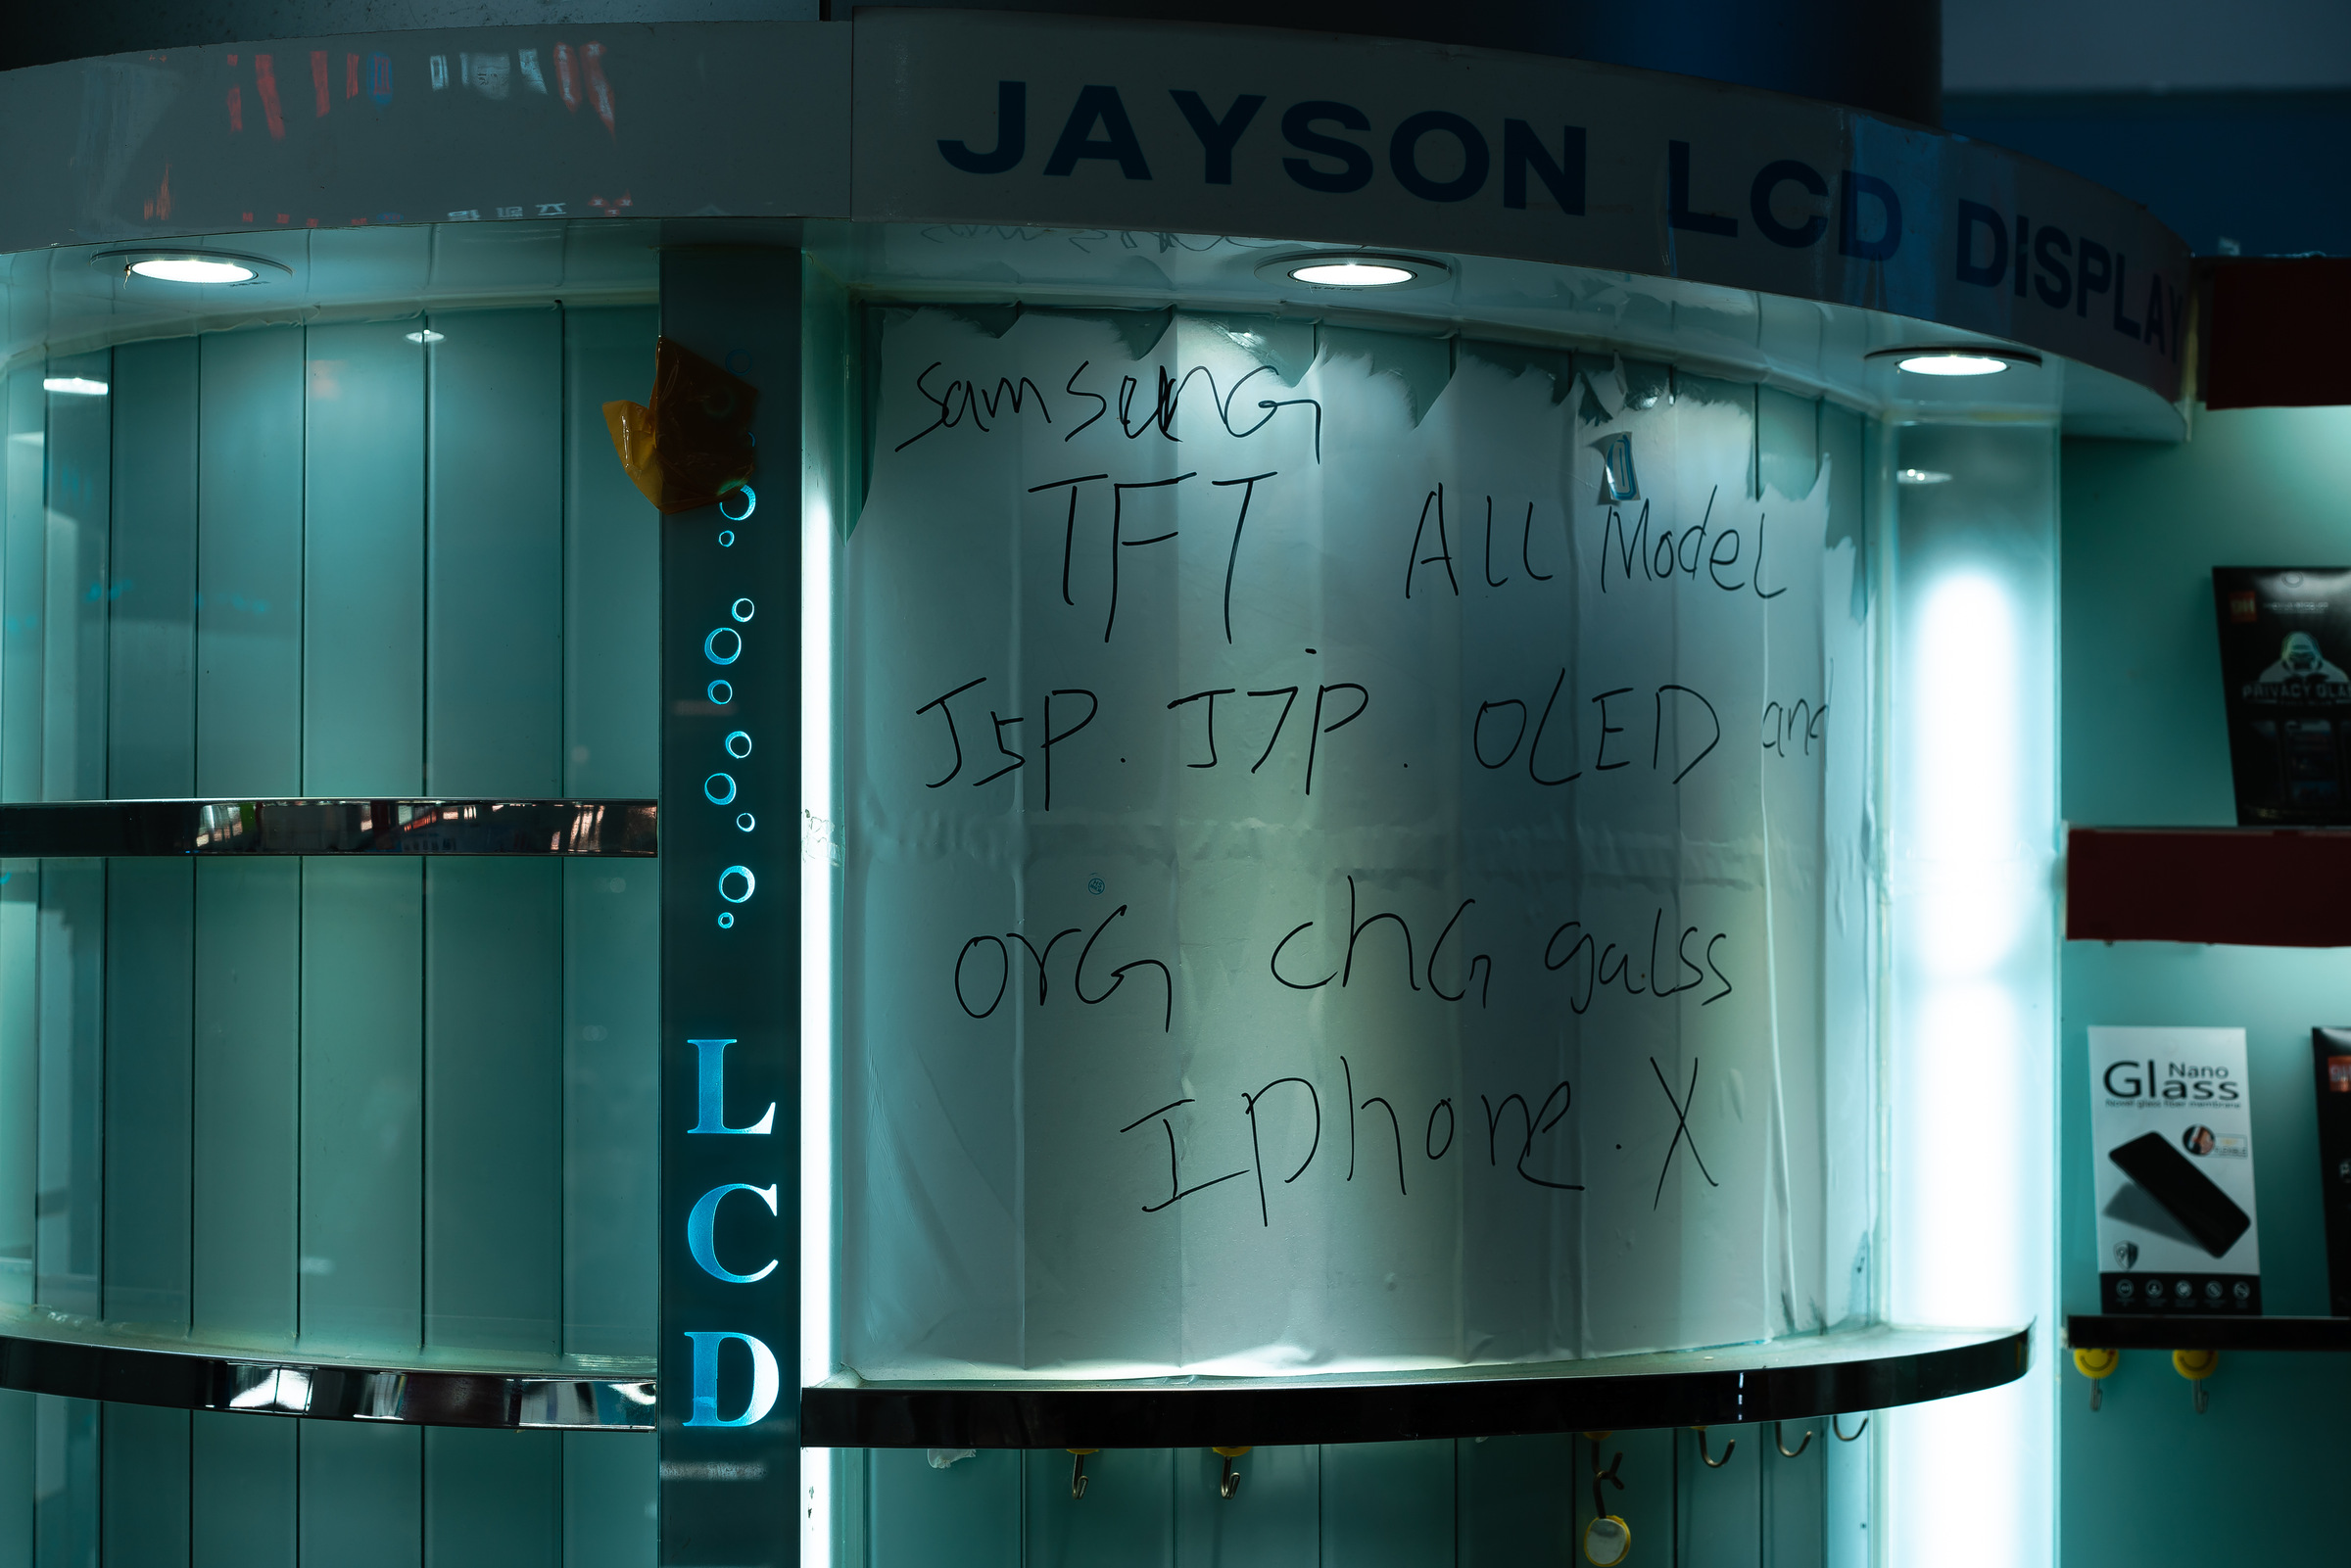 JAYSON LCD DISPLAY
samsung
TFT ALL Model
J5P. J7P. OLED and
orG chG galss
Iphone. X
LCD
PRIVACY GLA
Nano
Glass